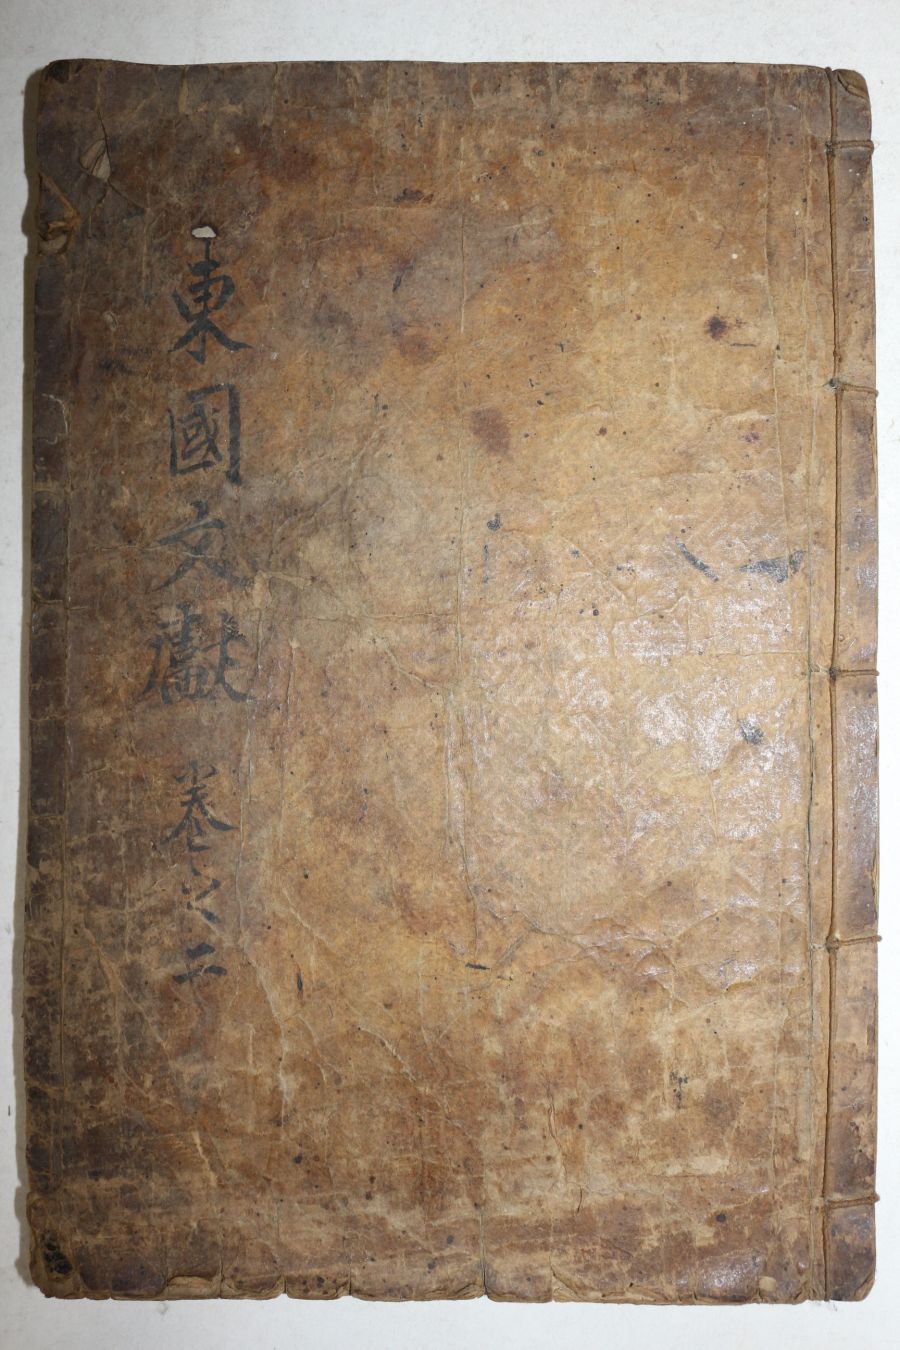 東國文獻 卷之二